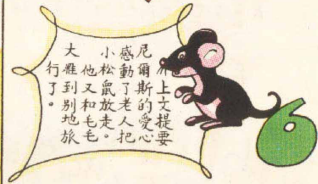 上文提要
尼爾斯的愛心
感動了老人把
小松鼠放走。
他又和毛毛
大雁到別地旅
行了。
6